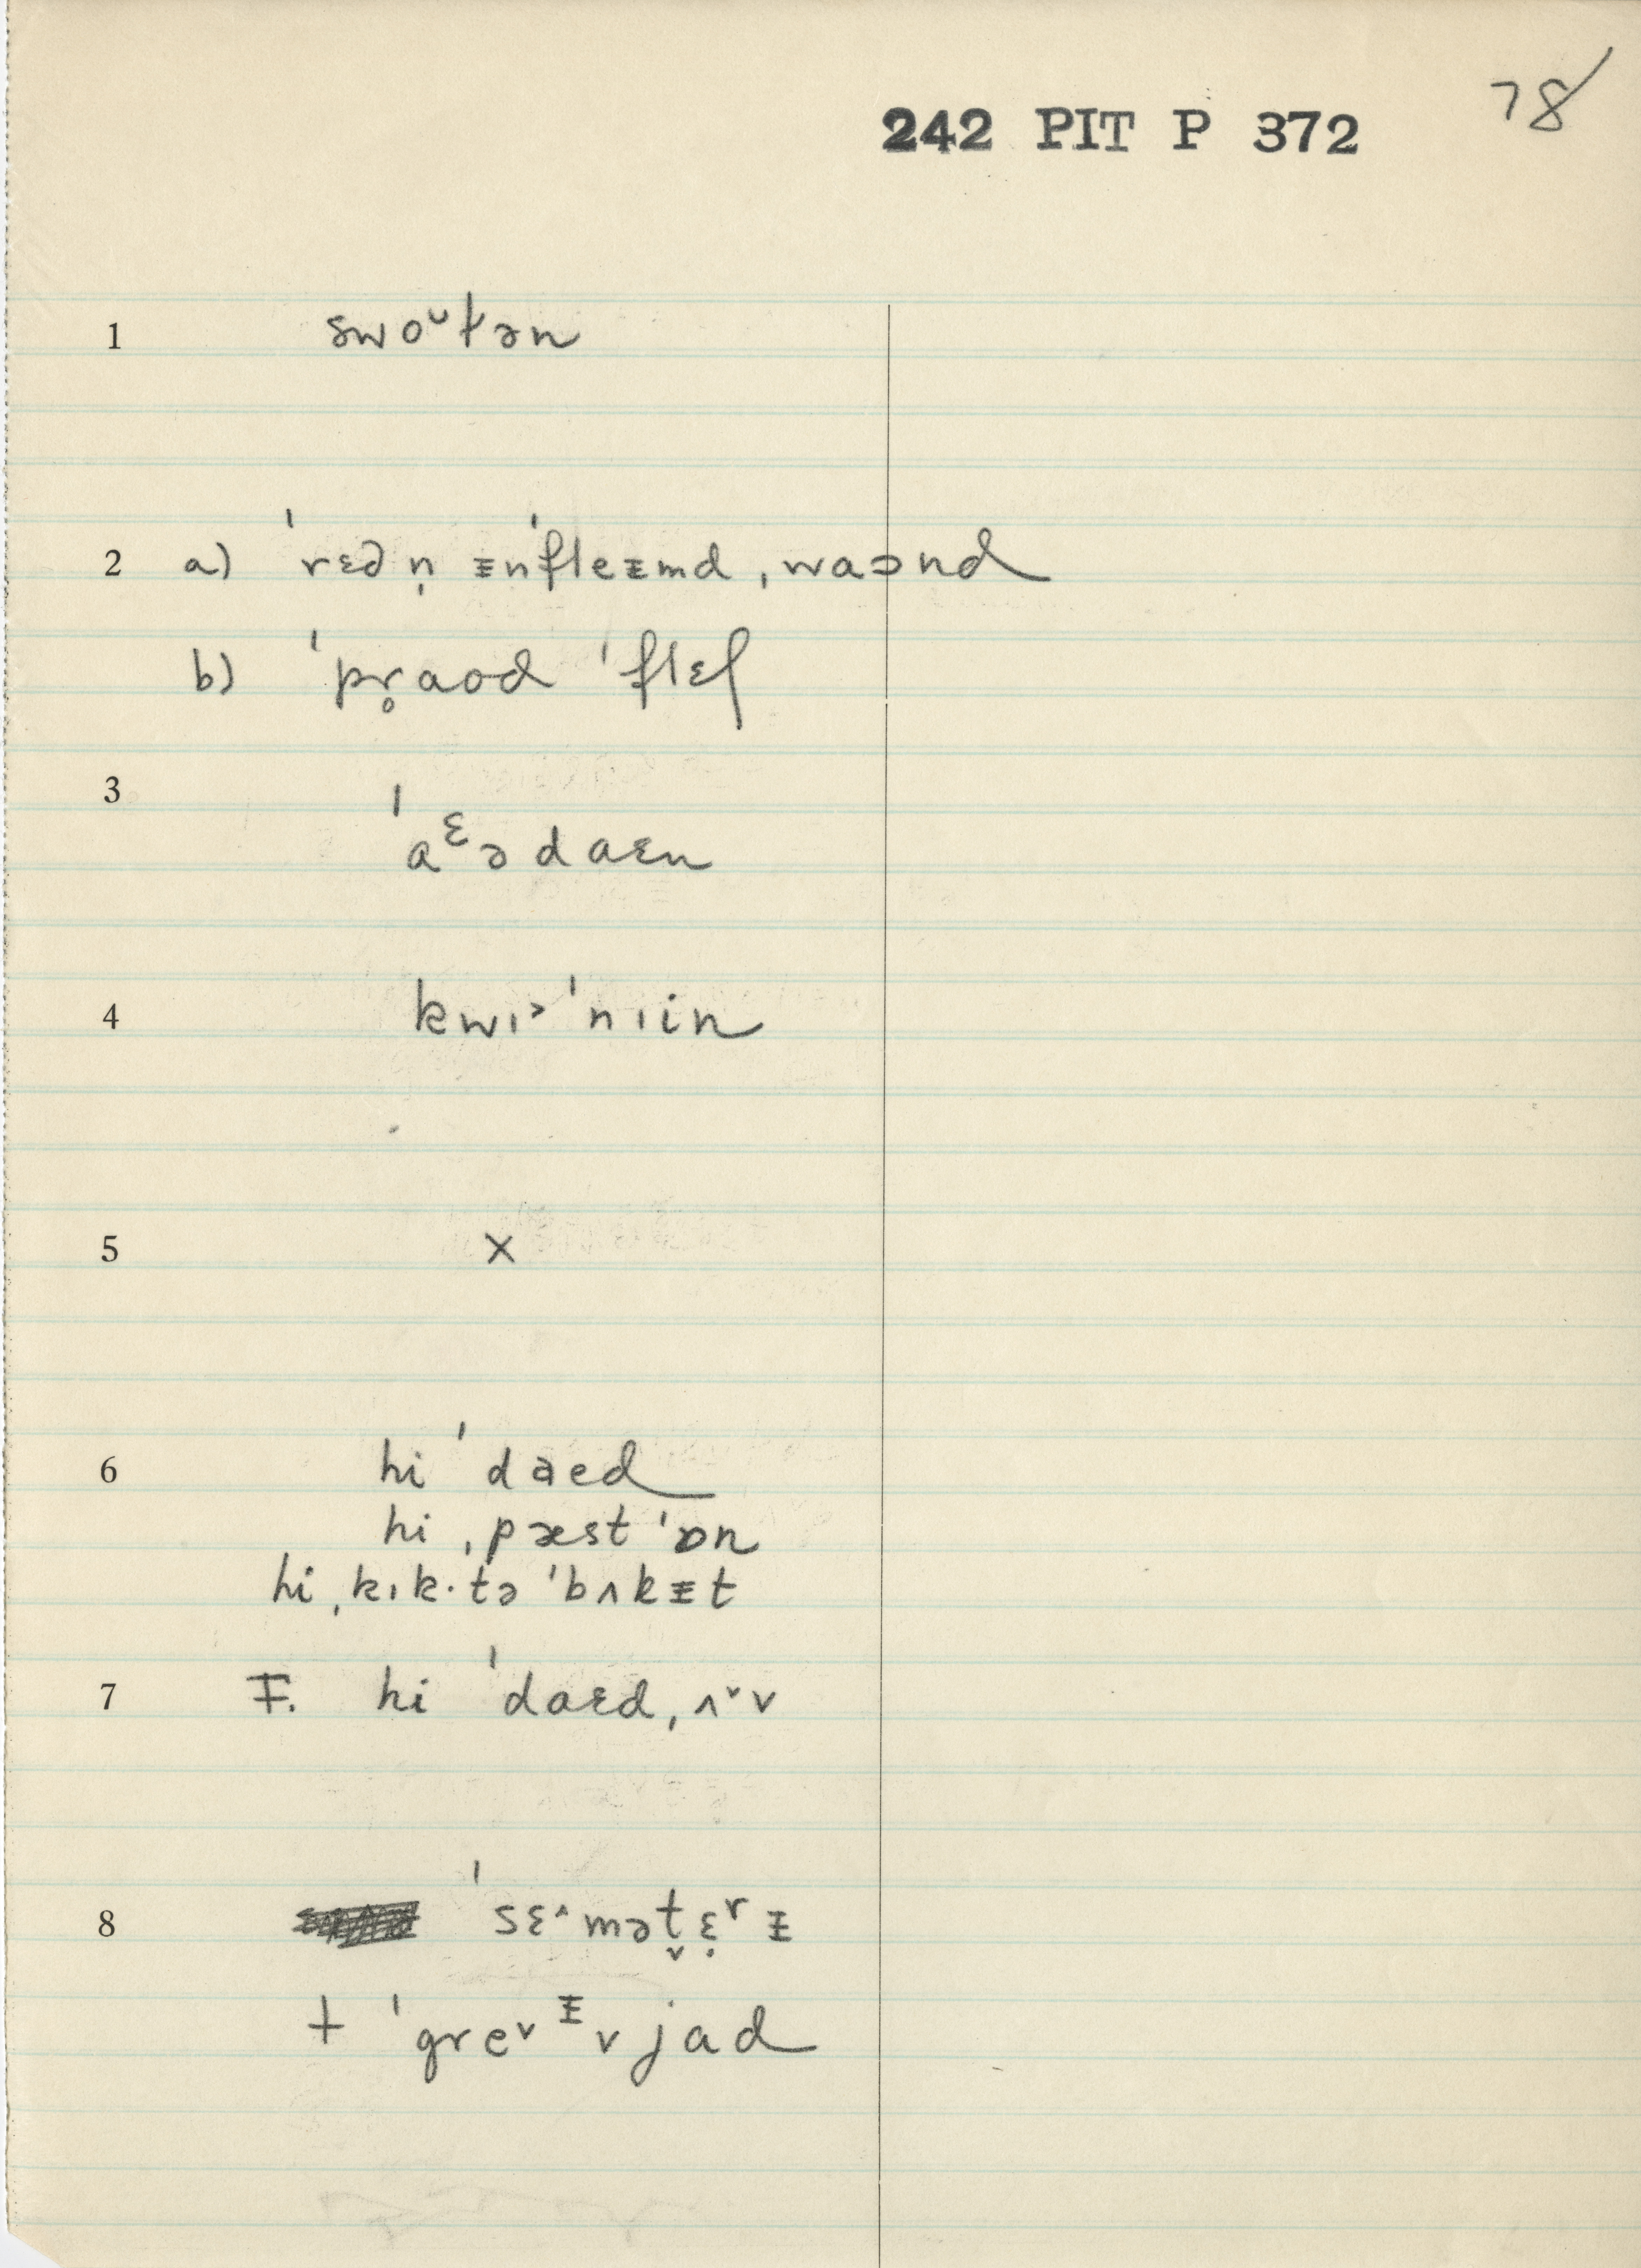 78
242 PIT P 372
1 swoᶷt̵ən
2 a) ˈrɛdn̩ ᵻnˈfleᵻmd ˌwaɔnd
b) ˈpr̥aod ˈflɛʃ
3 ˈaᵋədaɛn
4 kwɪ˃ ˈnɪin
5 x
6 hi ˈdaed
hi ˌpæst ˈɒn
hi ˌkɪk·tə ˈbʌkᵻt
7 F. hi ˈdaɛd ˌʌ˅v
8 ˈsɛ˄mət̬ɛ̣ʳᵻ
+ ˈgre˅ᵻvjad